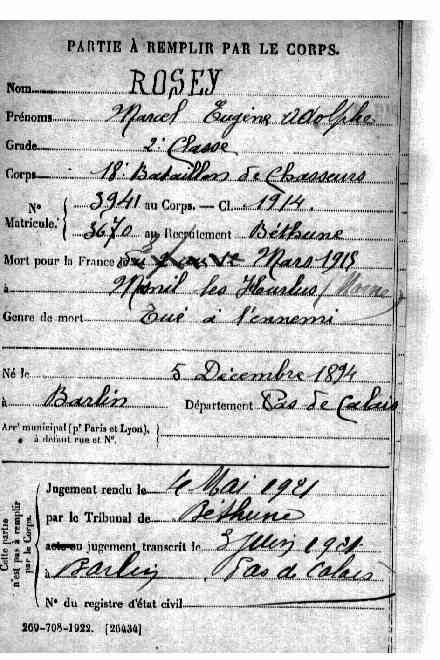 PARTIE À REMPLIR PAR LE CORPS.
Nom ROSEY
Prénoms Marcel Eugène Adolphe
Grade 2e Classe
Corps 18e Bataillon de Chasseurs
N° Matricule. { 3941 au Corps. — Cl. 1914.
3670 au Recrutement Béthune
Mort pour la France Mars 1915
à Mesnil les Hurlus (Marne)
Genre de mort Tué à l'ennemi
Né le 5 Décembre 1894
à Barlin Département Pas de Calais
Arrt municipal (pr Paris et Lyon), à défaut rue et N°. {
Cette partie n'est pas à remplir par le Corps.
Jugement rendu le 4 Mai 1921
par le Tribunal de Béthune
acte ou jugement transcrit le 3 Juin 1921
à Barlin Pas de Calais
N° du registre d'état civil
269-708-1922. [26434]